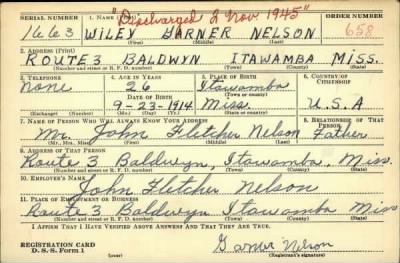 "Discharged 2 Nov. 1945"
SERIAL NUMBER 1. NAME (Print) ORDER NUMBER
1663 WILEY GARNER NELSON 658
(First) (Middle) (Last)
2. ADDRESS (Print)
ROUTE 3 BALDWYN ITAWAMBA MISS.
(Number and street or R. F. D. number) (Town) (County) (State)
3. TELEPHONE 4. AGE IN YEARS 5. PLACE OF BIRTH 6. COUNTRY OF CITIZENSHIP
None 26 Itawamba
DATE OF BIRTH (Town or county)
9-23-1914 Miss. U.S.A
(Exchange) (Number) (Mo.) (Day) (Yr.) (State or country)
7. NAME OF PERSON WHO WILL ALWAYS KNOW YOUR ADDRESS 8. RELATIONSHIP OF THAT PERSON
Mr. John Fletcher Nelson Father
(Mr., Mrs., Miss) (First) (Middle) (Last)
9. ADDRESS OF THAT PERSON
Route 3 Baldwyn, Itawamba, Miss.
(Number and street or R. F. D. number) (Town) (County) (State)
10. EMPLOYER'S NAME
John Fletcher Nelson
11. PLACE OF EMPLOYMENT OR BUSINESS
Route 3 Baldwyn Itawamba Miss
(Number and street or R. F. D. number) (Town) (County) (State)
I AFFIRM THAT I HAVE VERIFIED ABOVE ANSWERS AND THAT THEY ARE TRUE.
REGISTRATION CARD
D. S. S. Form 1 Garner Nelson
(Registrant's signature)